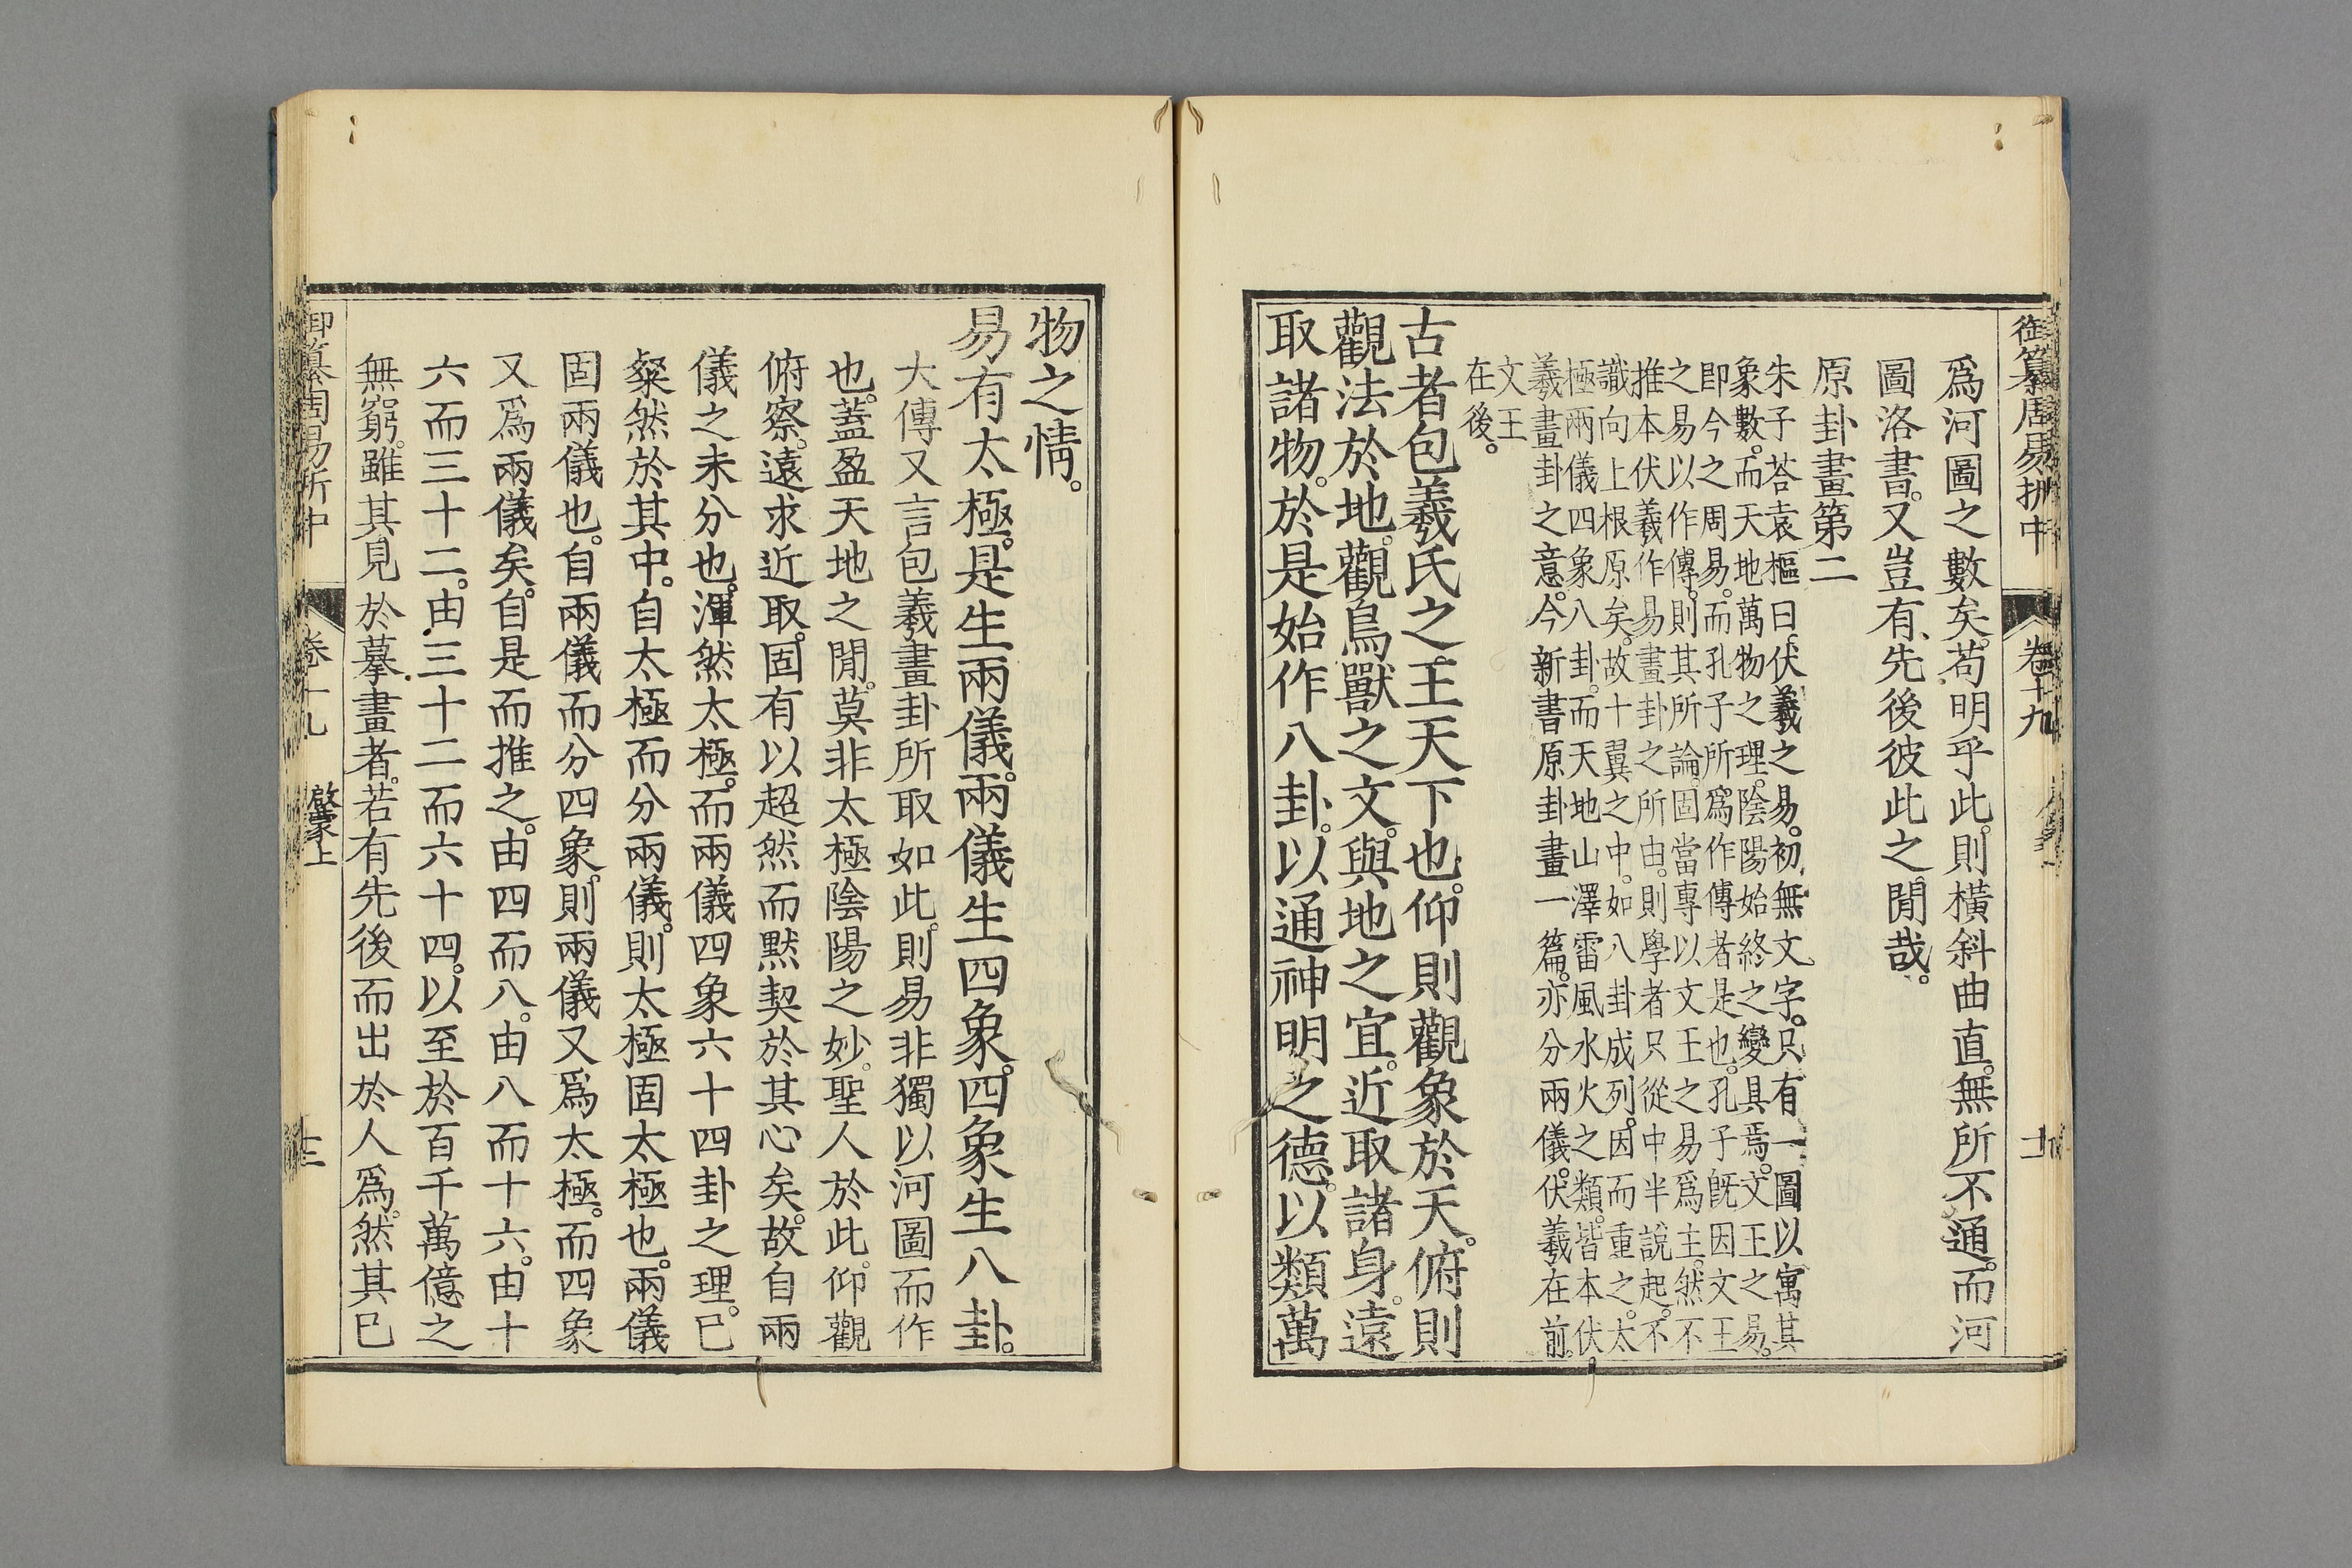 御纂周易折中 卷十九
爲河圖之數矣。苟明乎此。則橫斜曲直。無所不通。而河
圖洛書。又豈有先後彼此之閒哉。
原卦畫第二
朱子荅袁樞曰。伏羲之易。初無文字。只有一圖以寓其
象數。而天地萬物之理。陰陽始終之變具焉。文王之易。
即今之周易。而孔子所爲作傳者是也。孔子旣因文王
之易以作傳。則其所論。固當專以文王之易爲主。然不
推本伏羲作易畫卦之所由。則學者只從中半說起。不
識向上根原矣。故十翼之中。如八卦成列。因而重之。太
極兩儀四象八卦。而天地山澤雷風水火之類。皆本伏
羲畫卦之意。今新書原卦畫一篇。亦分兩儀。伏羲在前。
文王
在後。
古者包羲氏之王天下也。仰則觀象於天。俯則
觀法於地。觀鳥獸之文。與地之宜。近取諸身。遠
取諸物。於是始作八卦。以通神明之德。以類萬
物之情。
易有太極。是生兩儀。兩儀生四象。四象生八卦。
大傳又言包羲畫卦所取如此。則易非獨以河圖而作
也。蓋盈天地之閒。莫非太極陰陽之妙。聖人於此。仰觀
俯察。遠求近取。固有以超然而默契於其心矣。故自兩
儀之未分也。渾然太極。而兩儀四象六十四卦之理。已
粲然於其中。自太極而分兩儀。則太極固太極也。兩儀
固兩儀也。自兩儀而分四象。則兩儀又爲太極。而四象
又爲兩儀矣。自是而推之。由四而八。由八而十六。由十
六而三十二。由三十二而六十四。以至於百千萬億之
無窮。雖其見於摹畫者。若有先後而出於人爲。然其已
御纂周易折中 卷十九 啟蒙上 十三